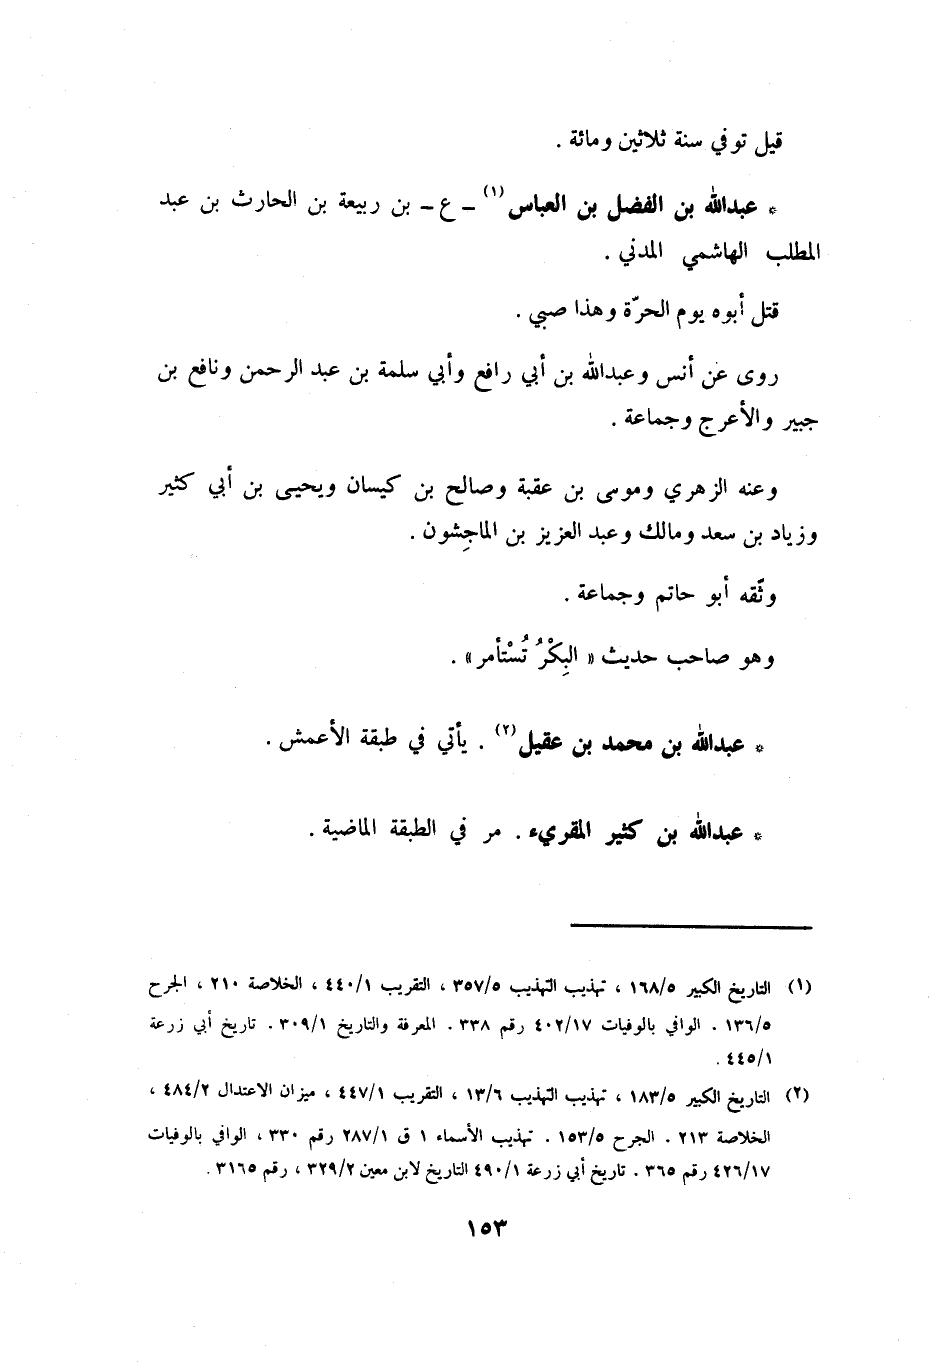 قيل توفي سنة ثلاثين ومائة .
* عبدالله بن الفضل بن العباس(١) ـ ع ـ بن ربيعة بن الحارث بن عبد
المطلب الهاشمي المدني .
قتل أبوه يوم الحرّة وهذا صبي .
روى عن أنس وعبدالله بن أبي رافع وأبي سلمة بن عبد الرحمن ونافع بن
جبير والأعرج وجماعة .
وعنه الزهري وموسى بن عقبة وصالح بن كيسان ويحيى بن أبي كثير
وزياد بن سعد ومالك وعبد العزيز بن الماجِشون .
وثّقه أبو حاتم وجماعة .
وهو صاحب حديث « البِكْرُ تُسْتأمر» .
* عبدالله بن محمد بن عقيل(٢) . يأتي في طبقة الأعمش .
* عبدالله بن كثير المقريء . مر في الطبقة الماضية .
(١) التاريخ الكبير ١٦٨/٥ ، تهذيب التهذيب ٣٥٧/٥ ، التقريب ٤٤٠/١ ، الخلاصة ٢١٠ ، الجرح
١٣٦/٥ . الوافي بالوفيات ٤٠٢/١٧ رقم ٣٣٨ . المعرفة والتاريخ ٣٠٩/١ . تاريخ أبي زرعة
٤٤٥/١ .
(٢) التاريخ الكبير ١٨٣/٥ ، تهذيب التهذيب ١٣/٦ ، التقريب ٤٤٧/١ ، ميزان الاعتدال ٤٨٤/٢ ،
الخلاصة ٢١٣ . الجرح ١٥٣/٥ . تهذيب الأسماء ١ ق ٢٨٧/١ رقم ٣٣٠ ، الوافي بالوفيات
٤٢٦/١٧ رقم ٣٦٥ . تاريخ أبي زرعة ٤٩٠/١ التاريخ لابن معين ٣٢٩/٢ ، رقم ٣١٦٥ .
١٥٣